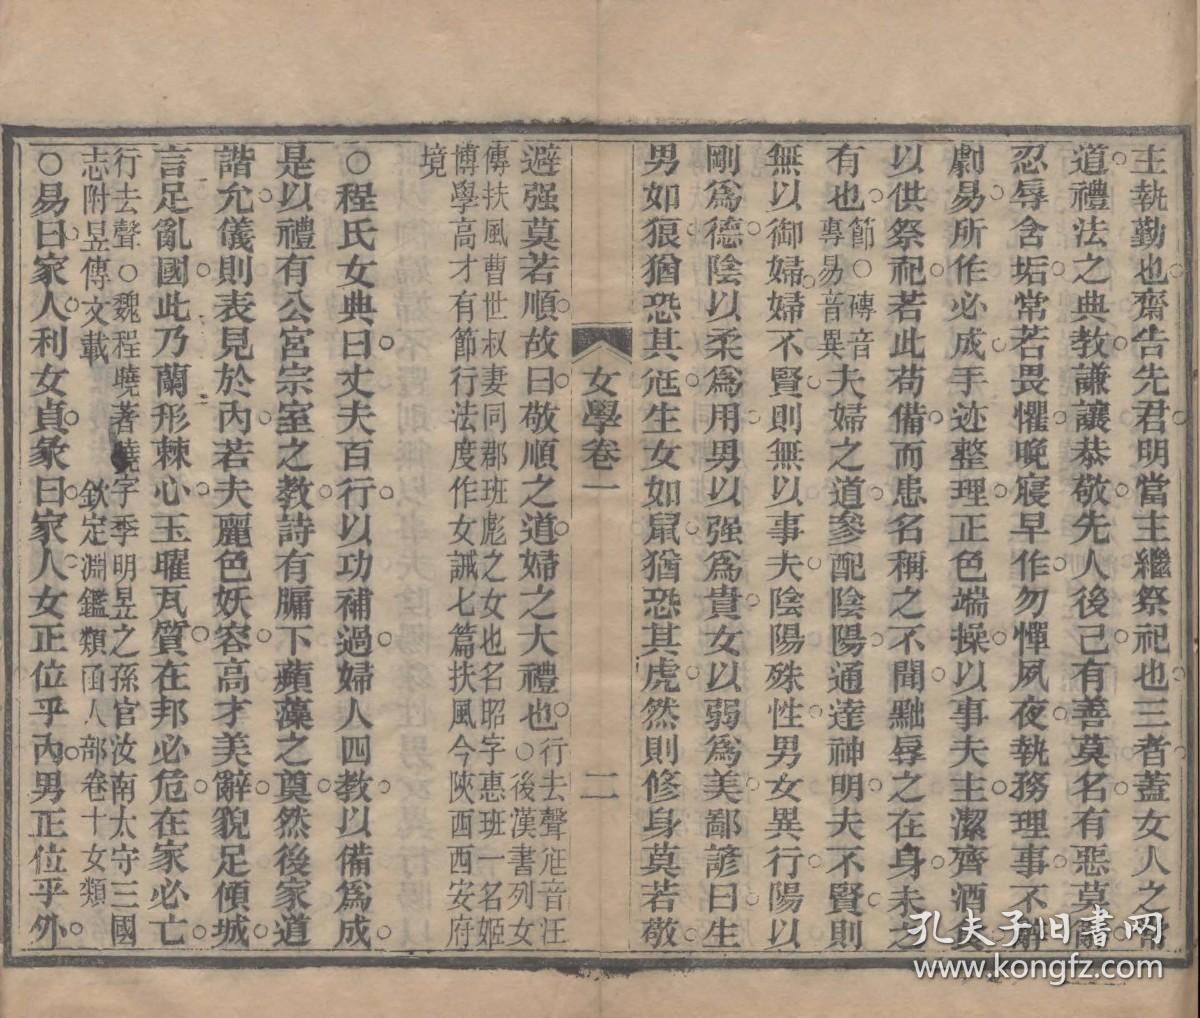 主執勤也齋告先君明當主繼祭祀也三者蓋女人之常
道禮法之典教謙讓恭敬先人後己有善莫名有惡莫辭
忍辱含垢常若畏懼晚寢早作勿憚夙夜執務理事不辭
劇易所作必成手迹整理正色端操以事夫主潔齊酒食
以供祭祀若此苟備而患名稱之不聞黜辱之在身未之
有也節○磚音專易音異夫婦之道參配陰陽通達神明夫不賢則
無以御婦婦不賢則無以事夫陰陽殊性男女異行陽以
剛爲德陰以柔爲用男以强爲貴女以弱爲美鄙諺曰生
男如狼猶恐其尩生女如鼠猶恐其虎然則修身莫若敬
女學卷一 二
避强莫若順故曰敬順之道婦之大禮也行去聲尩音汪○後漢書列女
傳扶風曹世叔妻同郡班彪之女也名昭字惠班一名姬
博學高才有節行法度作女誡七篇扶風今陝西西安府
境
○程氏女典曰丈夫百行以功補過婦人四教以備爲成
是以禮有公宮宗室之教詩有牖下蘋藻之奠然後家道
諧允儀則表見於內若夫麗色妖容高才美辭貌足傾城
言足亂國此乃蘭形棘心玉曜瓦質在邦必危在家必亡
行去聲○魏程曉著曉字季明昱之孫官汝南太守三國
志附昱傳文載 欽定淵鑑類函人部卷十女類
○易曰家人利女貞彖曰家人女正位乎內男正位乎外
孔夫子旧书网
www.kongfz.com